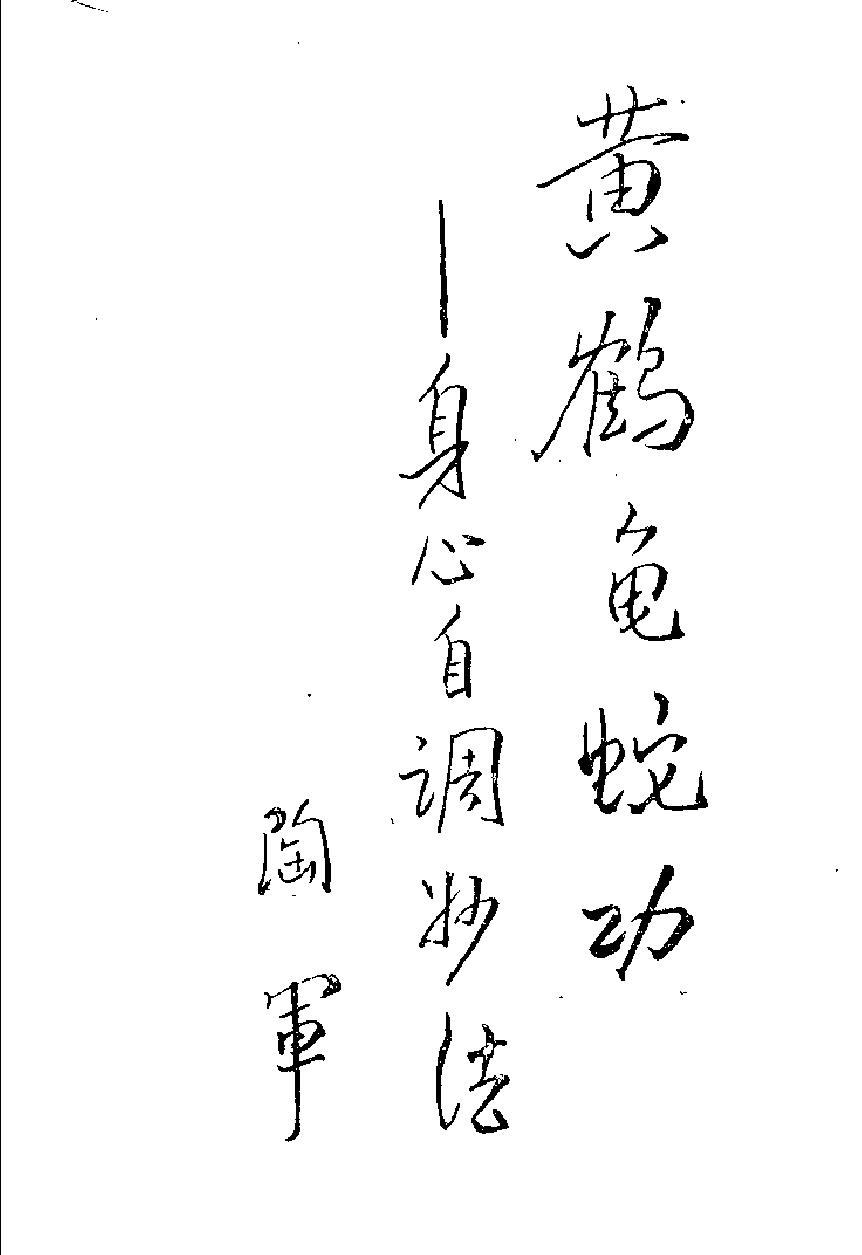 黄鹤龟蛇功
—身心自调妙法
陶軍